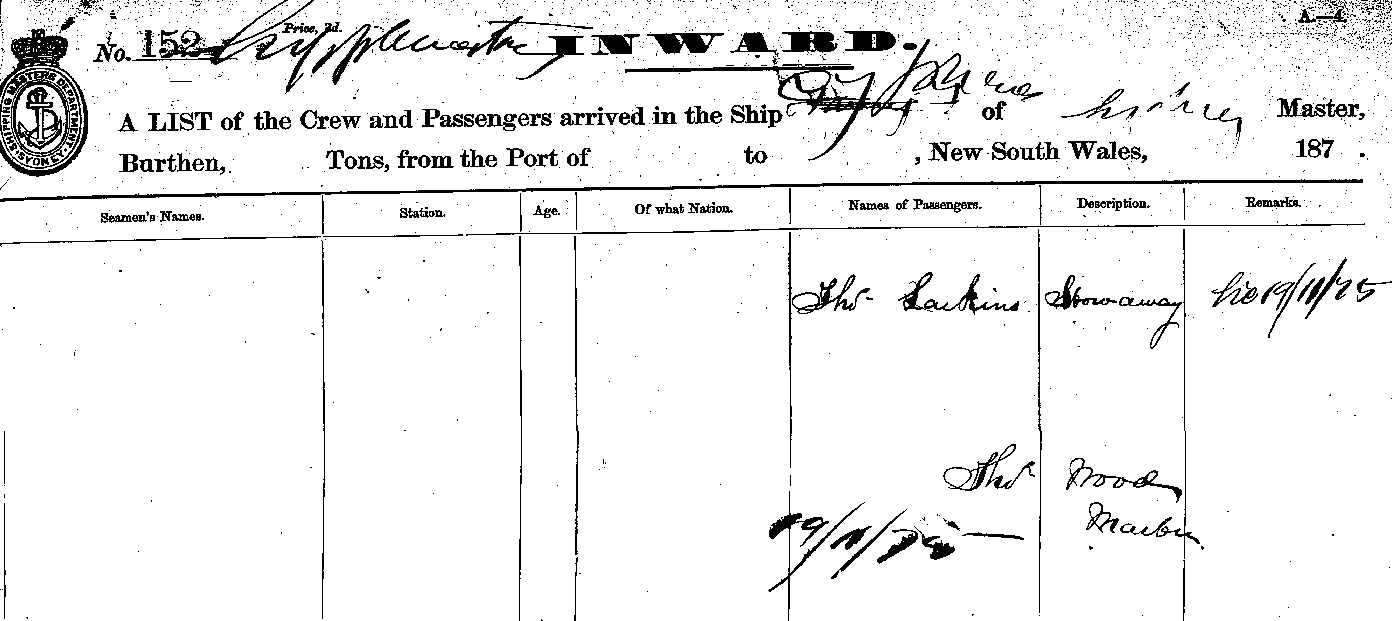 A.—4.
Price, 2d.
No. 152 Supplementary INWARD.
SHIPPING MASTERS DEPARTMENT SYDNEY
A LIST of the Crew and Passengers arrived in the Ship City of Master,
Burthen, Tons, from the Port of to , New South Wales, 187 .
Seamen's Names. Station. Age. Of what Nation. Names of Passengers. Description. Remarks.
Thos Larkins Stowaway 19/11/75
Thos Wood
19/11/75 — Master